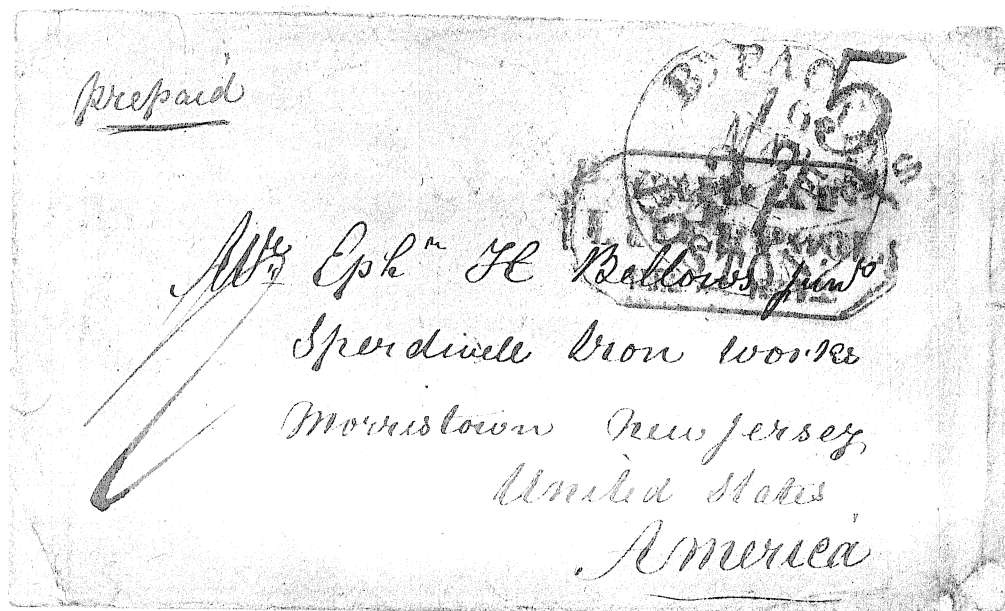 prepaid
Br. PACKET
5
Mr Ephm H Bellows junr
Sperdwell Iron works
Morristown New Jersey
United States
America